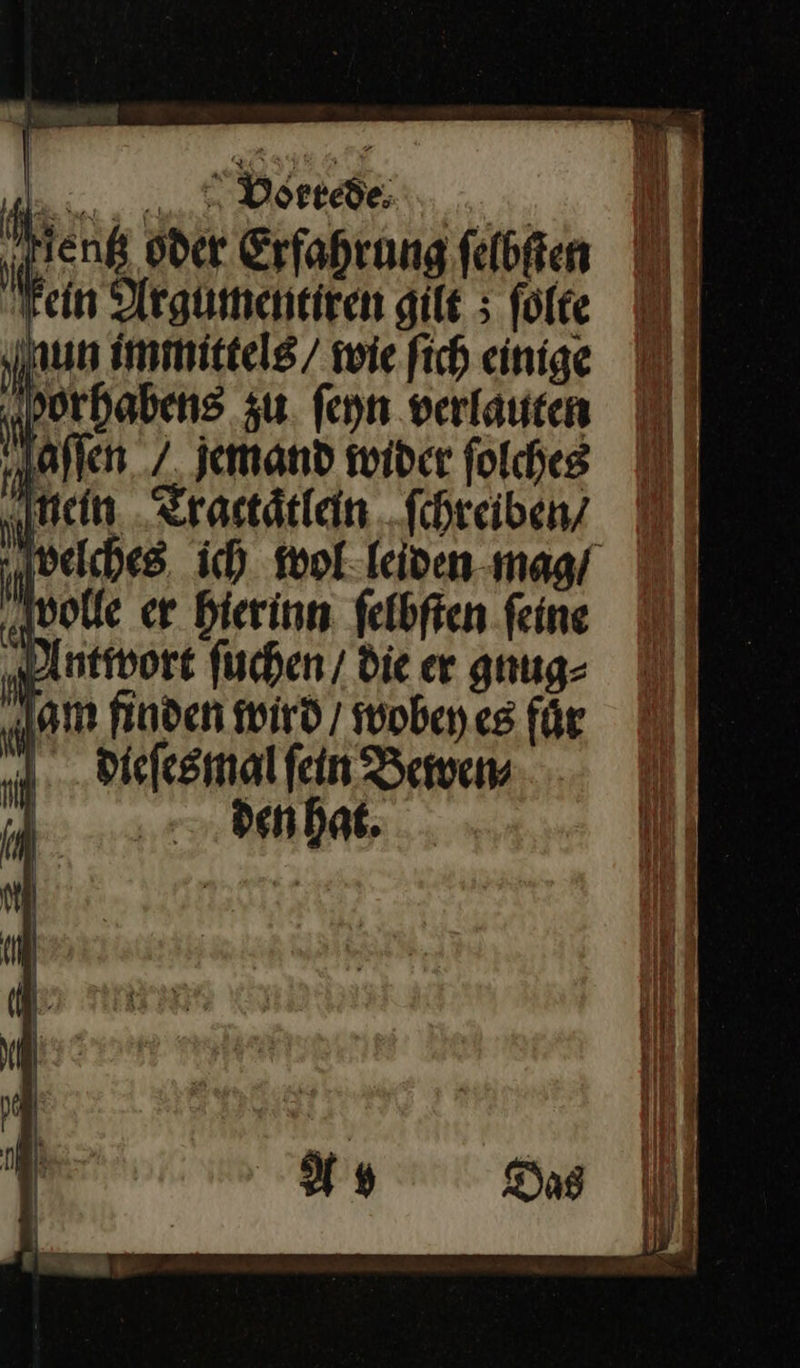 Vorrede.
rientz oder Erfahrung ſelbſten
kein Argumentiren gilt ; ſolte
nun immittels / wie ſich einige
vorhabens zu ſeyn verlauten
laſſen / jemand wider ſolches
mein Tractaͤtlein ſchreiben /
welches ich wol leiden mag /
wolle er hierinn ſelbſten ſeine
Antwort ſuchen / die er gnug⸗
ſam finden wird / wobey es fuͤr
dieſesmal ſein Bewen⸗
den hat.
A v Das